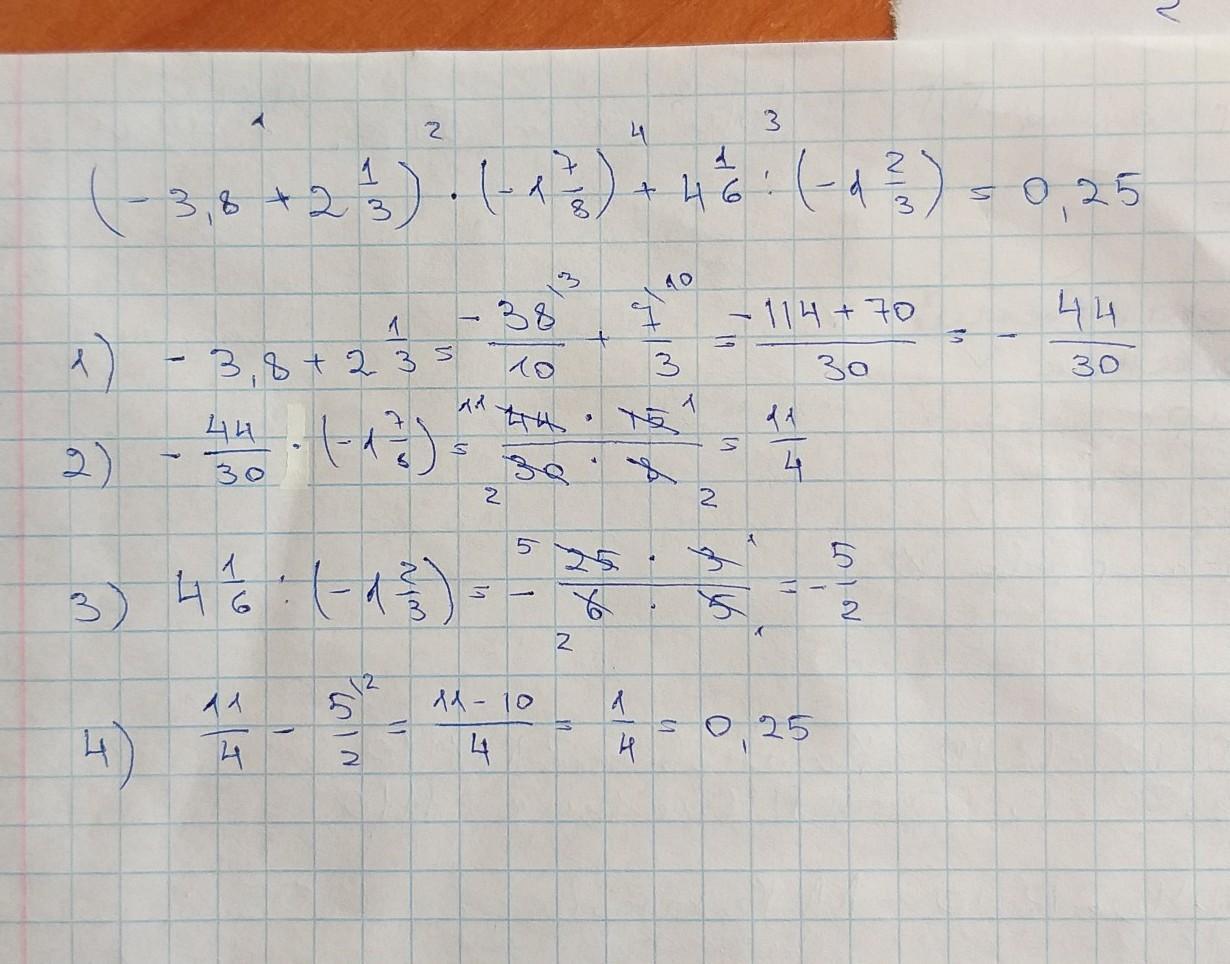 (-3,8 + 2 1/3) · (-1 7/8) + 4 1/6 : (-1 2/3) = 0,25
1) -3,8 + 2 1/3 = -38/10 + 7/3 = (-114 + 70)/30 = -44/30
2) -44/30 · (-1 7/8) = (44 · 15)/(30 · 8) = 11/4
3) 4 1/6 : (-1 2/3) = -(25 · 3)/(6 · 5) = -5/2
4) 11/4 - 5/2 = (11 - 10)/4 = 1/4 = 0,25